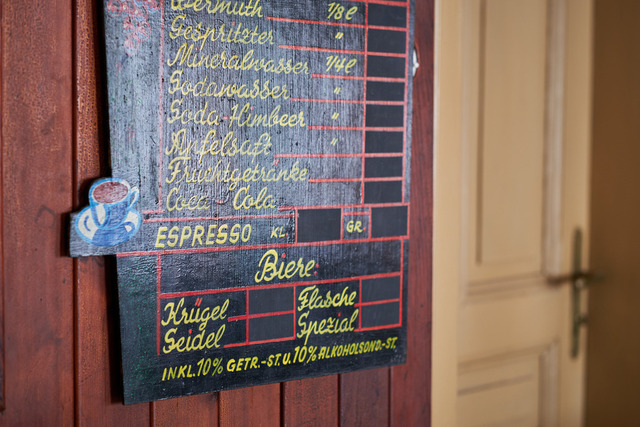 Wermuth 1/8 l
Gespritzter "
Mineralwasser 1/4 l
Sodawasser "
Soda-Himbeer "
Apfelsaft "
Fruchtgetränke
Coca-Cola
ESPRESSO KL. GR.
Biere:
Krügel Flasche
Seidel Spezial
INKL. 10% GETR.-ST. U. 10% ALKOHOLSOND.-ST.